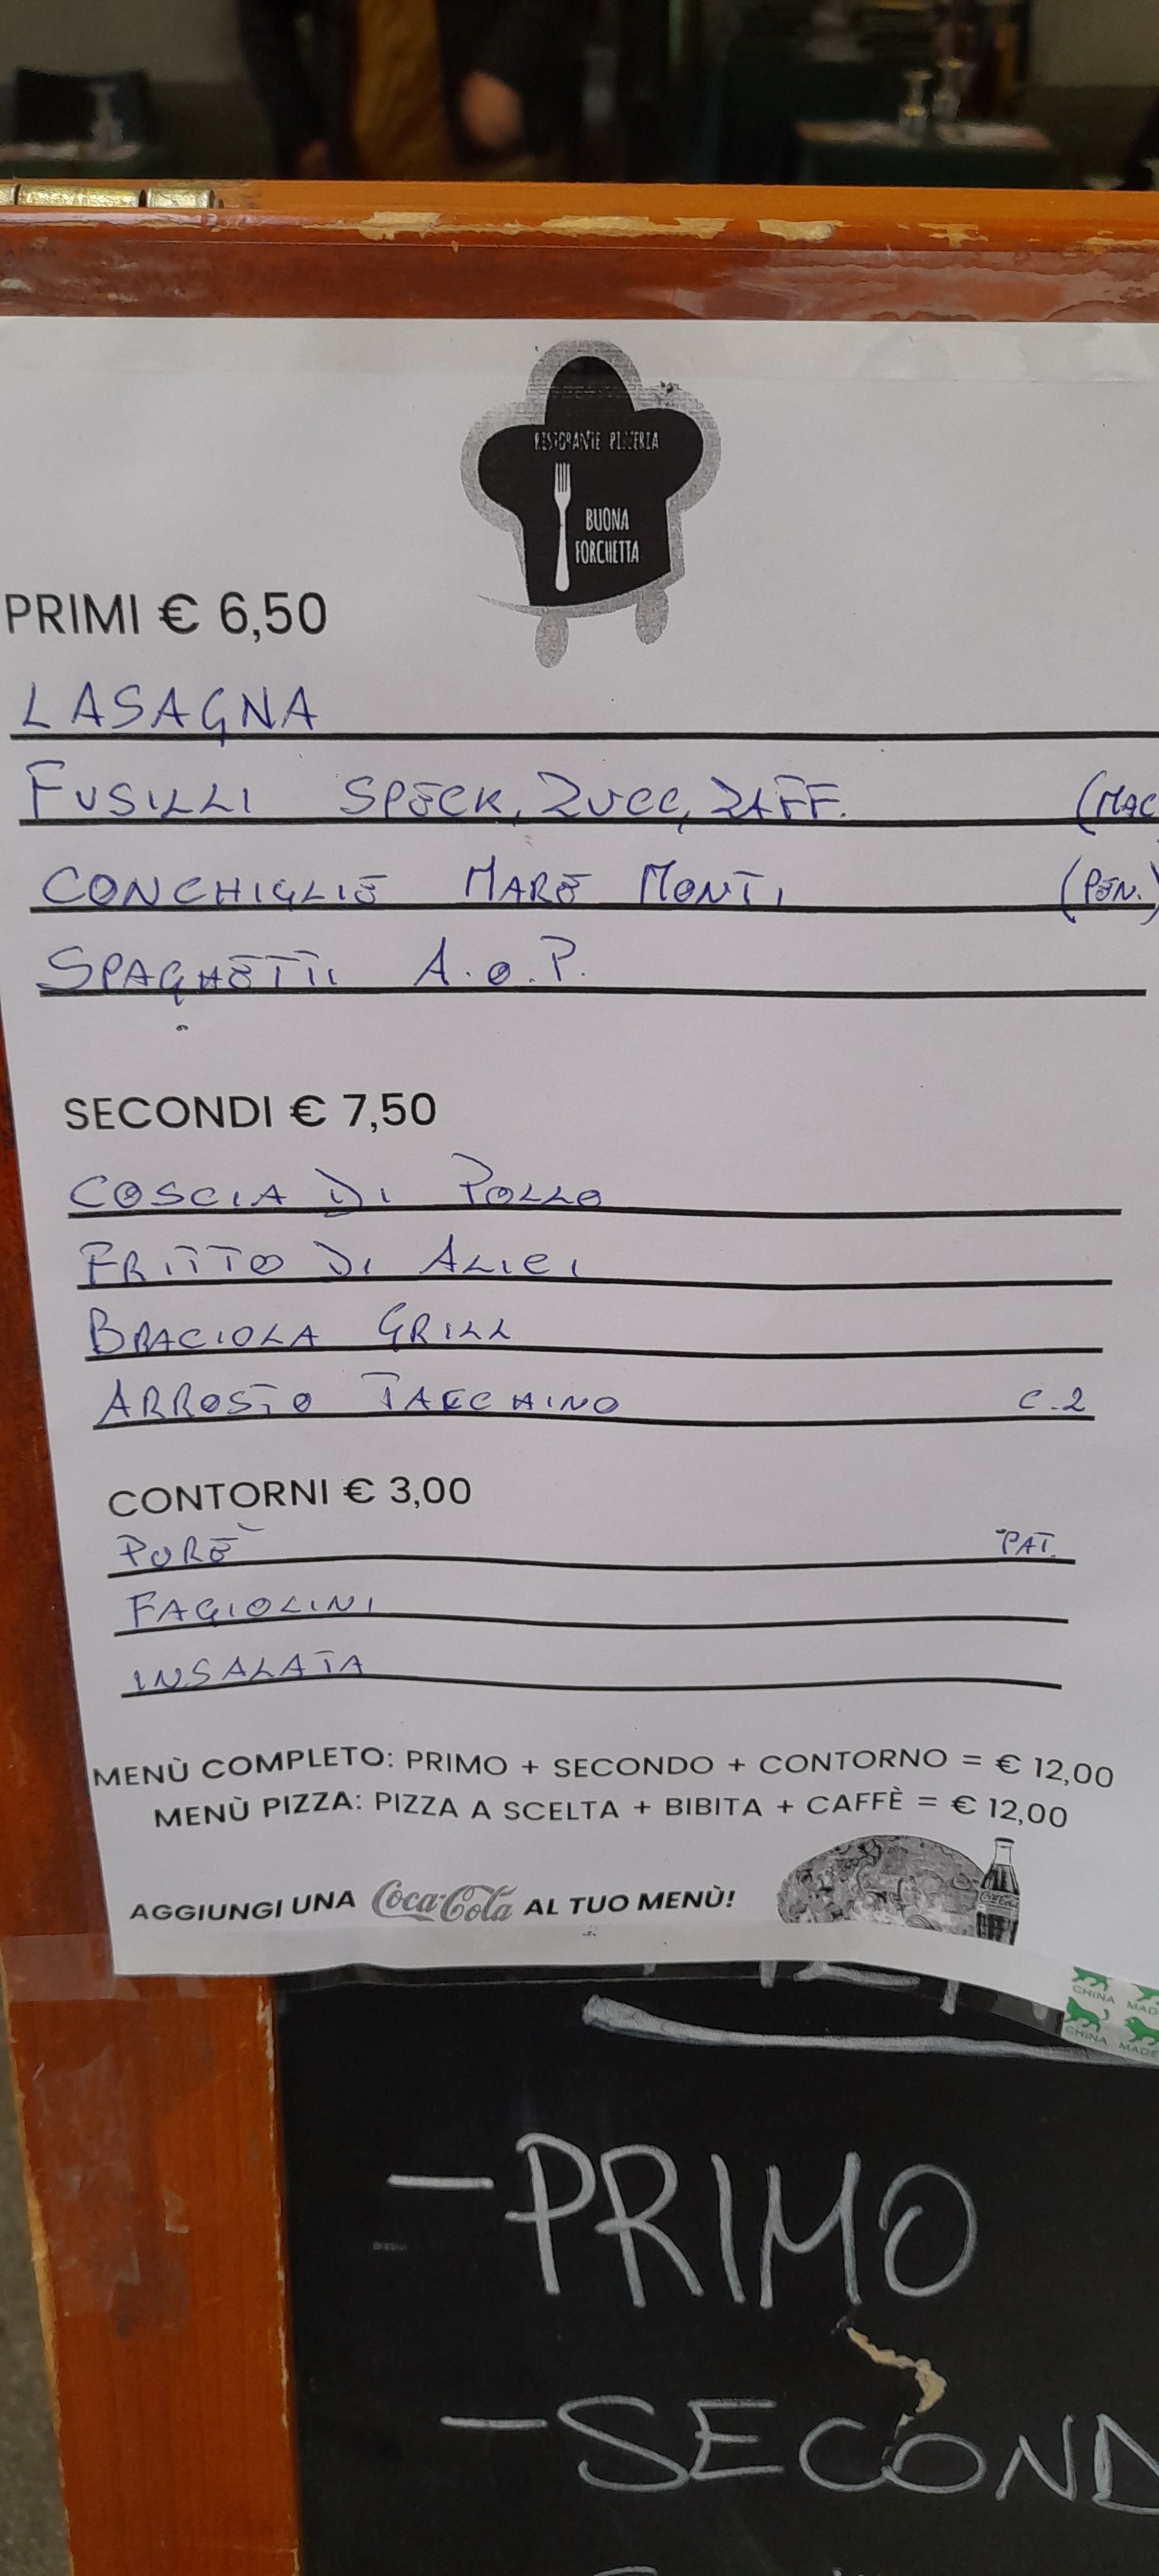 RISTORANTE PIZZERIA
BUONA
FORCHETTA
PRIMI € 6,50
LASAGNA
FUSILLI SPECK, ZUCC, ZAFF. (MAC
CONCHIGLIE MARE MONTI (PEN.)
SPAGHETTI A.O.P.
SECONDI € 7,50
COSCIA DI POLLO
FRITTO DI ALICI
BRACIOLA GRILL
ARROSTO TACCHINO C.2
CONTORNI € 3,00
PURÈ PAT.
FAGIOLINI
INSALATA
MENÙ COMPLETO: PRIMO + SECONDO + CONTORNO = € 12,00
MENÙ PIZZA: PIZZA A SCELTA + BIBITA + CAFFÈ = € 12,00
AGGIUNGI UNA Coca-Cola AL TUO MENÙ!
CHINA MAD
CHINA MADE
- PRIMO
- SECOND